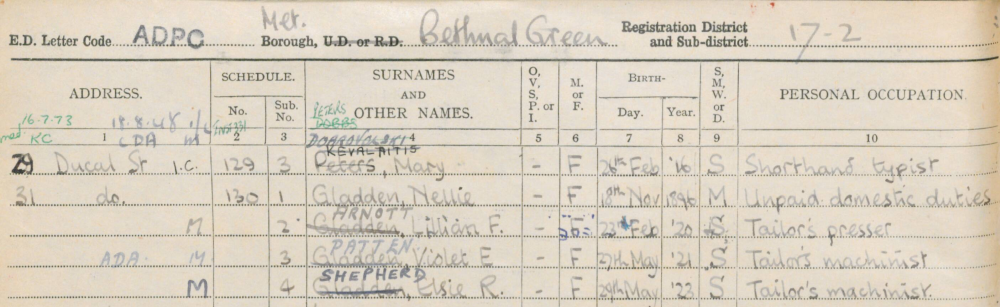 E.D. Letter Code ADPC Met. Borough, U.D. or R.D. Bethnal Green Registration District and Sub-district 17-2
ADDRESS. SCHEDULE. SURNAMES AND OTHER NAMES. O, V, S, P. or I. M. or F. BIRTH- S, M, W, or D. PERSONAL OCCUPATION.
No. Sub. No. Day. Year.
16.7.73 18.8.48 PETERS DOBBS
KC CDA M DOBROVOLSKI
1 2 3 4 5 6 7 8 9 10
KEVALAITIS
29 Ducal St I.C. 129 3 Peters, Mary - F 26th Feb '16 S Shorthand typist
31 do. 130 1 Gladden, Nellie - F 18th Nov 1896 M Unpaid domestic duties
ARNOTT
M 2 Gladden, Lilian F. - F 23rd Feb '20 S Tailor's presser
PATTEN
ADA M 3 Gladden, Violet E - F 27th May '21 S Tailor's machinist
SHEPHERD
M 4 Gladden, Elsie R. - F 29th May '23 S Tailor's machinist.